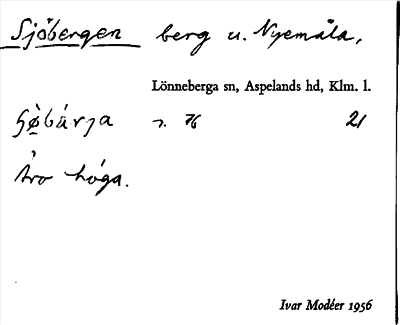 Sjöbergen berg u. Nyemåla,
Lönneberga sn, Aspelands hd, Klm. l.
76 21
Äro höga.
Ivar Modéer 1956